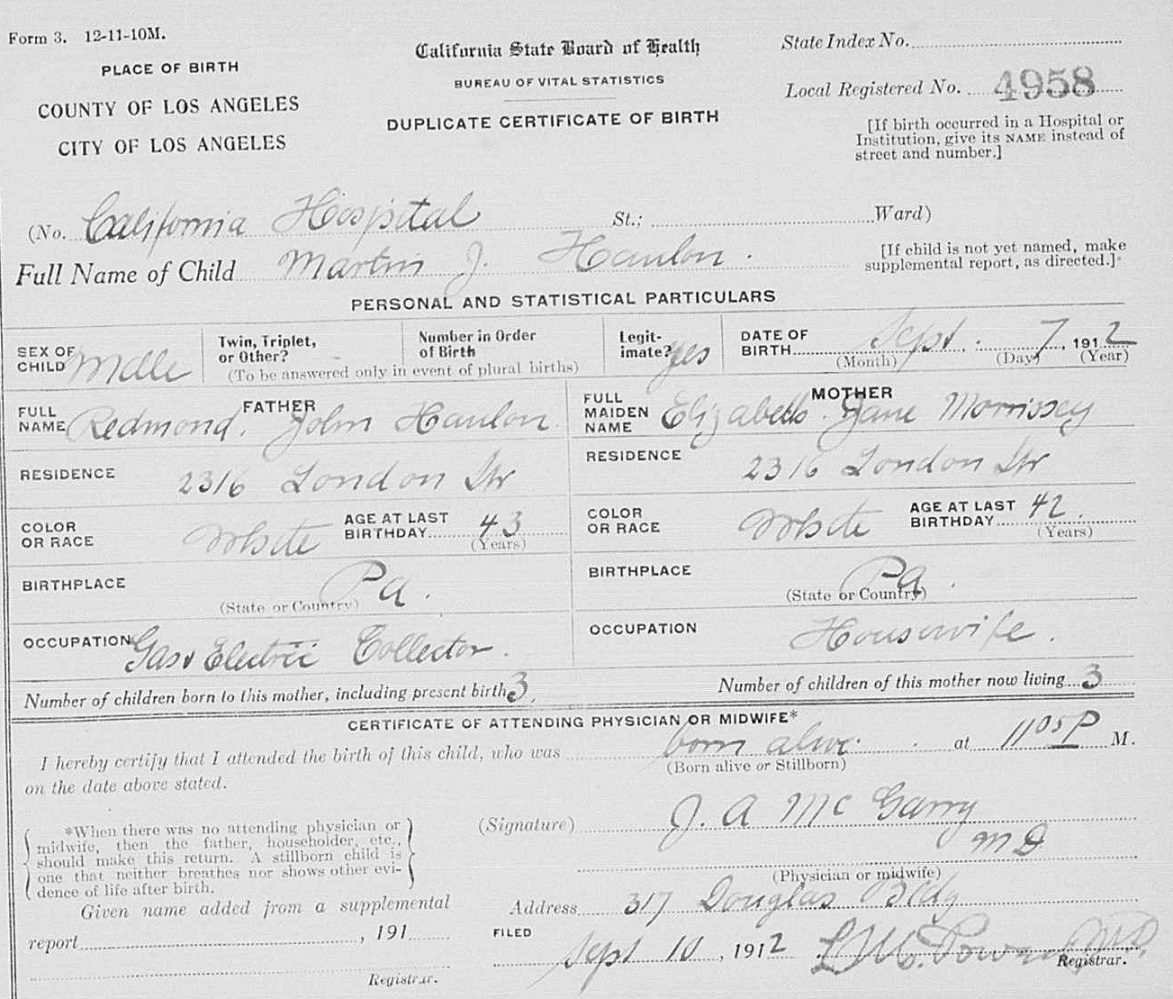 Form 3. 12-11-10M.
California State Board of Health
BUREAU OF VITAL STATISTICS
DUPLICATE CERTIFICATE OF BIRTH
PLACE OF BIRTH
COUNTY OF LOS ANGELES
CITY OF LOS ANGELES
State Index No.
Local Registered No. 4958
[If birth occurred in a Hospital or
Institution, give its NAME instead of
street and number.]
(No. California Hospital St.; Ward)
Full Name of Child Martin J. Hanlon.
[If child is not yet named, make
supplemental report, as directed.]
PERSONAL AND STATISTICAL PARTICULARS
SEX OF
CHILD Male
Twin, Triplet,
or Other?
Number in Order
of Birth
(To be answered only in event of plural births)
Legit-
imate? yes
DATE OF
BIRTH Sept. 7, 1912
(Month) (Day) (Year)
FATHER
FULL
NAME Redmond John Hanlon
RESIDENCE 2316 London Str
COLOR
OR RACE White
AGE AT LAST
BIRTHDAY 43
(Years)
BIRTHPLACE Pa.
(State or Country)
OCCUPATION Gas & Electric Collector.
MOTHER
FULL
MAIDEN
NAME Elizabeth Jane Morrissey
RESIDENCE 2316 London Str
COLOR
OR RACE White
AGE AT LAST
BIRTHDAY 42
(Years)
BIRTHPLACE Pa.
(State or Country)
OCCUPATION Housewife.
Number of children born to this mother, including present birth 3
Number of children of this mother now living 3
CERTIFICATE OF ATTENDING PHYSICIAN OR MIDWIFE*
I hereby certify that I attended the birth of this child, who was born alive. at 11 05 P M.
(Born alive or Stillborn)
on the date above stated.
*When there was no attending physician or
midwife, then the father, householder, etc.,
should make this return. A stillborn child is
one that neither breathes nor shows other evi-
dence of life after birth.
(Signature) J. A McGarry
MD
(Physician or midwife)
Given name added from a supplemental
report , 191
Registrar.
Address 317 Douglas Bldg
FILED Sept 10, 1912
Registrar.